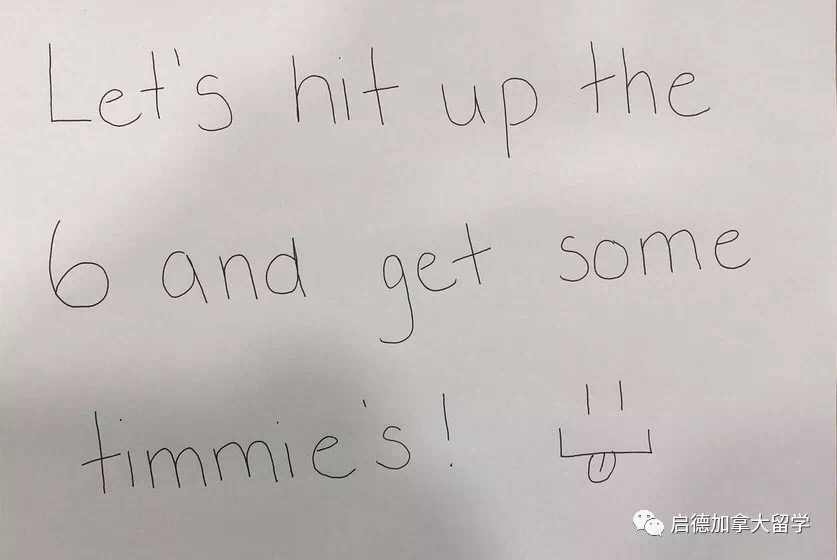 Let's hit up the
6 and get some
timmie's!
启德加拿大留学